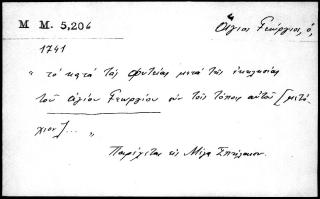 M M. 5,206
Ἅγιος Γεώργιος, ὁ,
1741
" τὸ κατὰ τὰς φυτείας μετὰ τῆς ἐκκλησίας
τοῦ ἁγίου Γεωργίου σὺν τοῖς τόποις αὐτοῦ [μετό-
χιον]... "
Παρέχεται εἰς Μέγα Σπήλαιον.